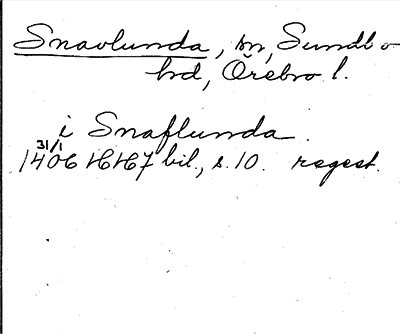 Snavlunda, sn, Sundbo
hd, Örebro l.
i Snaflunda.
31/1
1406 HH7 bil., s. 10. regest.